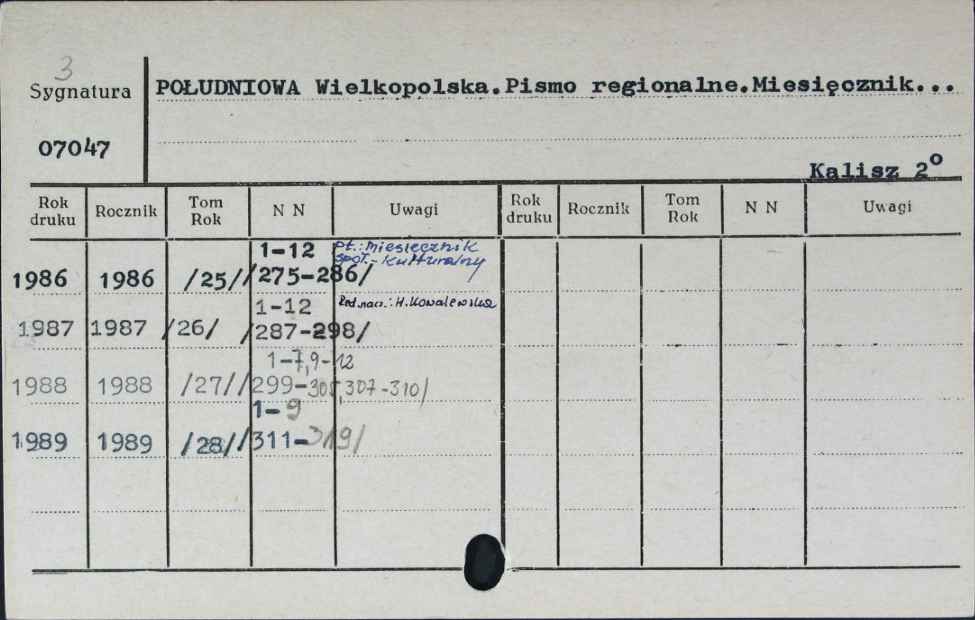 3
Sygnatura
POŁUDNIOWA Wielkopolska.Pismo regionalne.Miesięcznik...
07047
Kalisz 2o
Rok druku Rocznik Tom Rok N N Uwagi Rok druku Rocznik Tom Rok N N Uwagi
1-12 pt.: Miesięcznik
społ.-kulturalny
1986 1986 /25/ /275-286/
1-12 Red.nacz.: H. Kowalewska
1987 1987 /26/ /287-298/
1-7,9-12
1988 1988 /27/ /299-305,307-310/
1-9
1989 1989 /28/ /311-319/